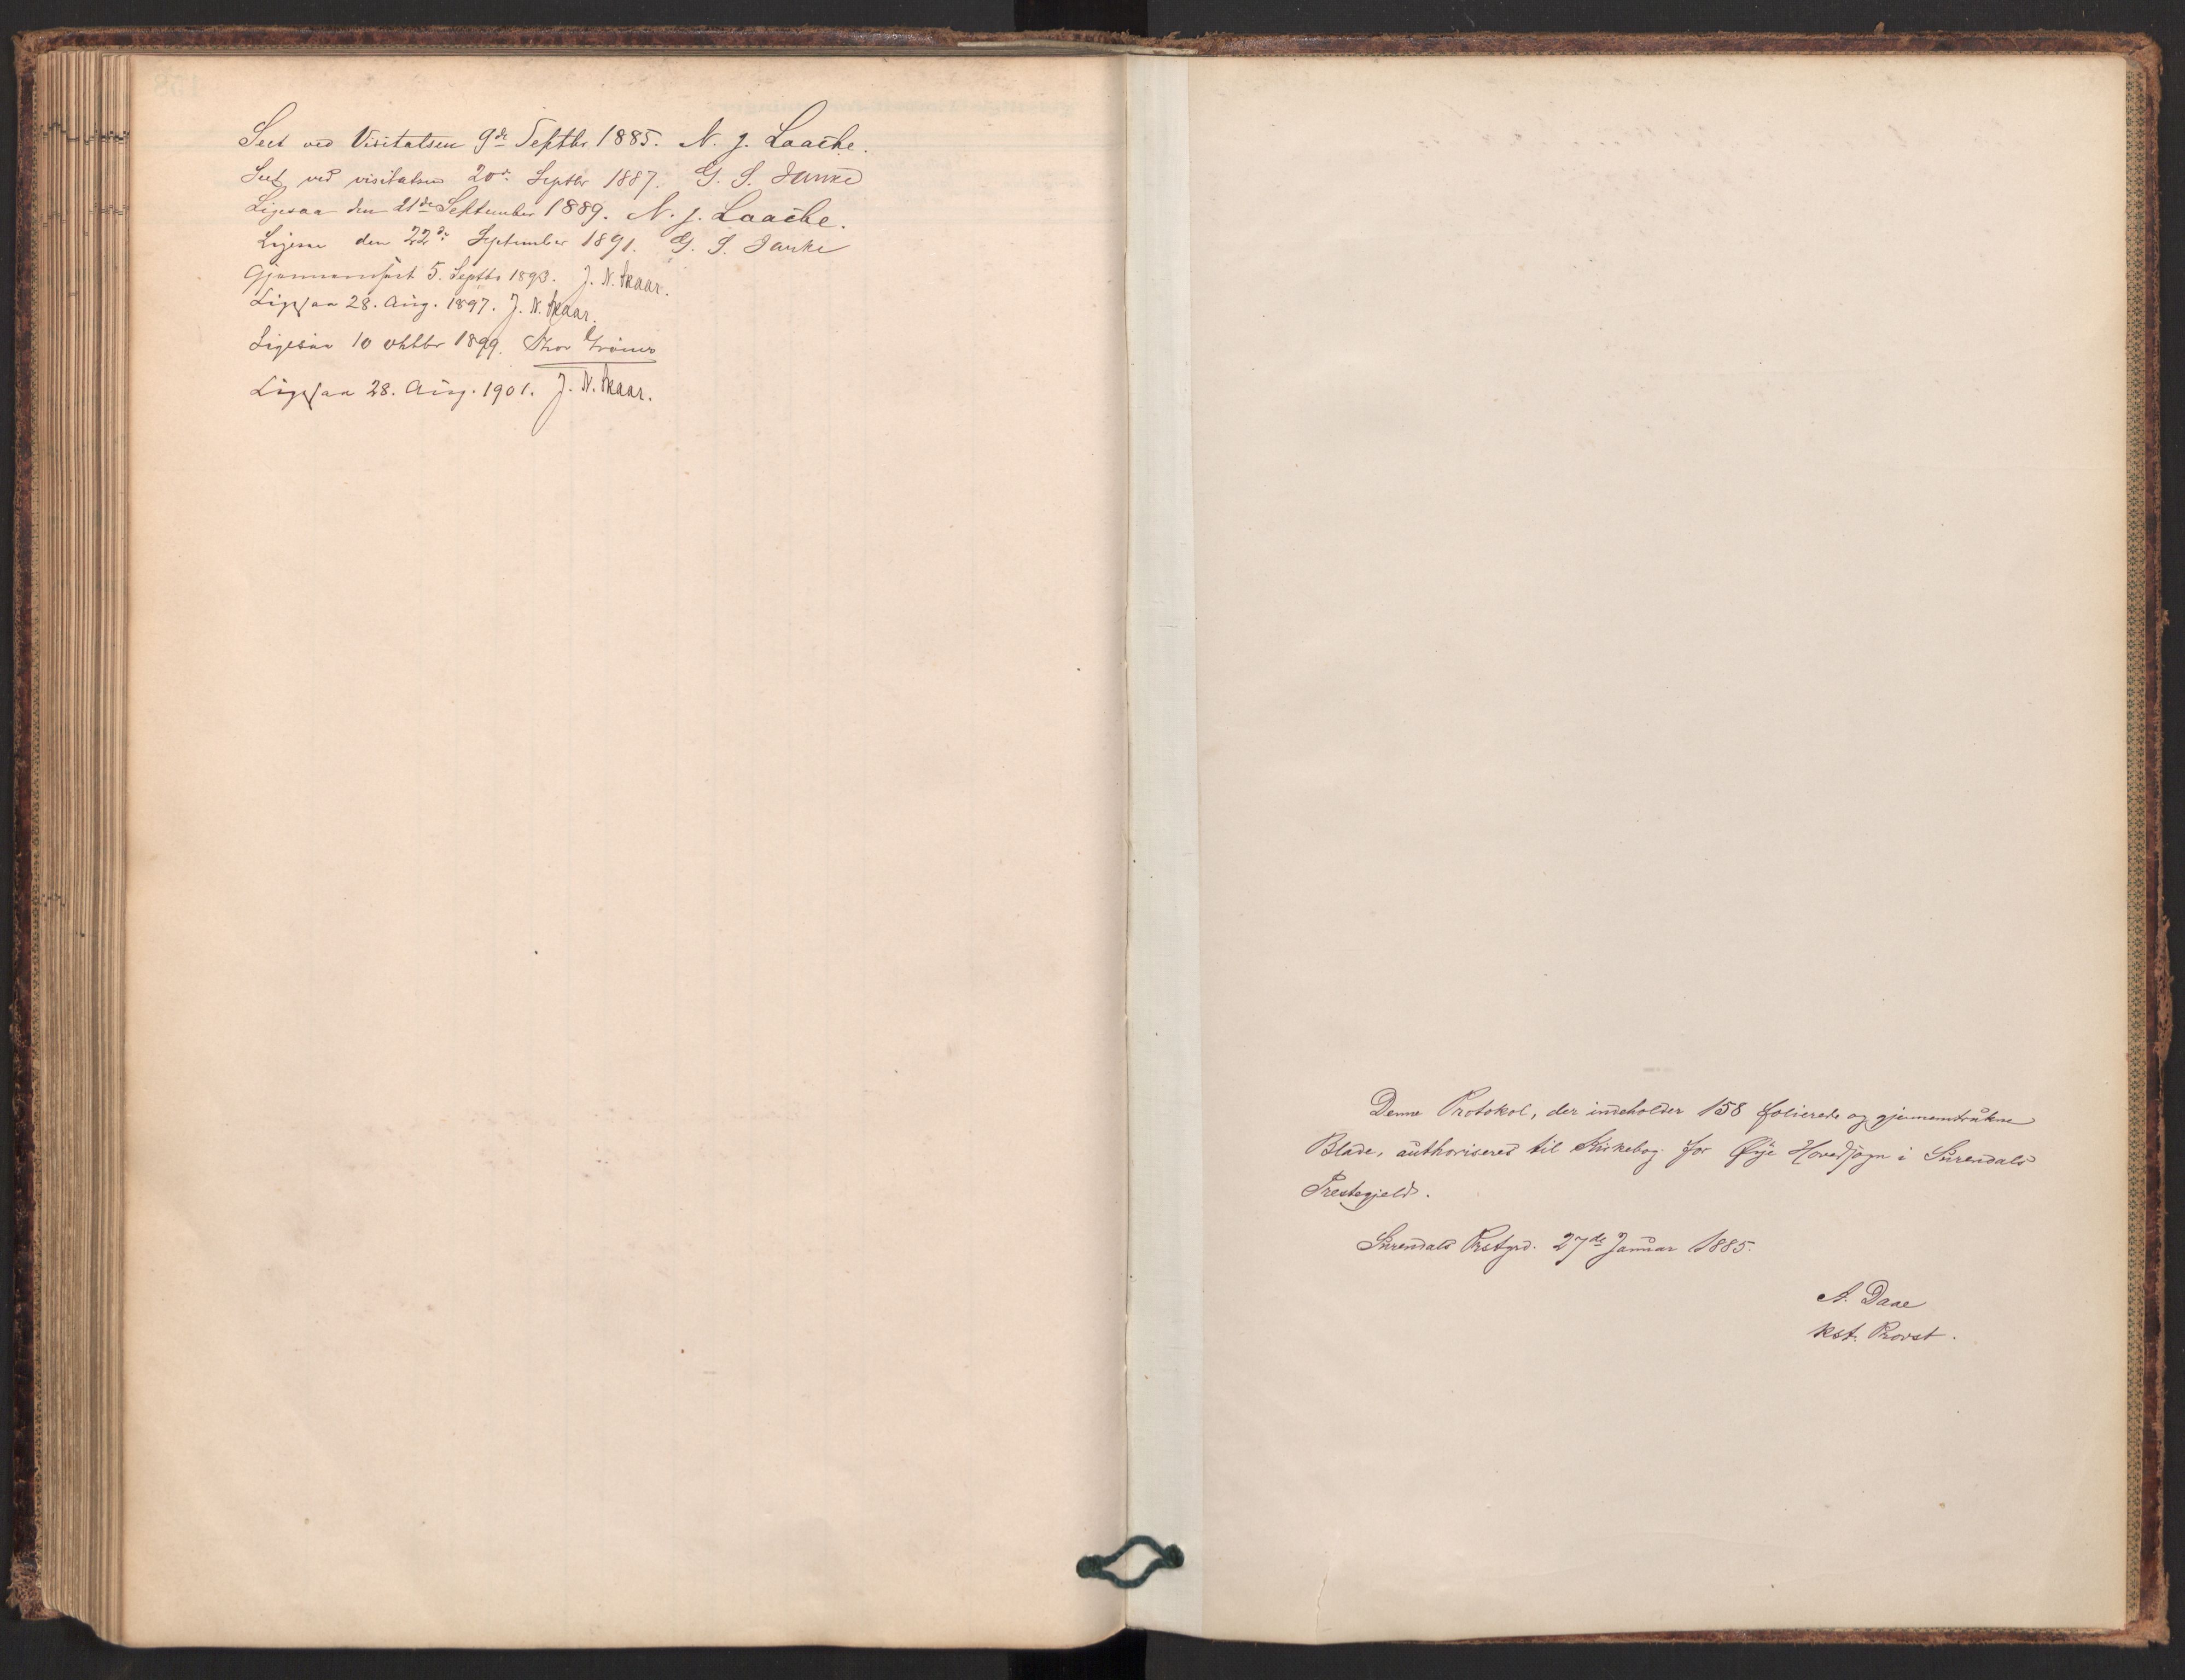 Seet ved Visitatsen 9de Septbr. 1885. N. J. Laache.
Seet ved visitatsen 20de Septbr 1887. G. S. Janke
Ligesaa den 21de September 1889. N. J. Laache.
Ligesaa den 22de September 1891. G. S. Janke
Gjennemseet 5. Septbr 1893. J. N. Skaar.
Ligesaa 28. Aug. 1897. J. N. Skaar.
Ligesaa 10 oktbr 1899. Thor
Ligesaa 28. Aug. 1901. J. N. Skaar.
Denne Protokol, der indeholder 158 folierede og gjennemtrukne
Blade, authoriseres til Kirkebog for Øye Hovedsogn i Surendals
Prestegjeld.
Surendals Prstgrd. 27de Januar 1885.
A. Daae
kst. Provst.